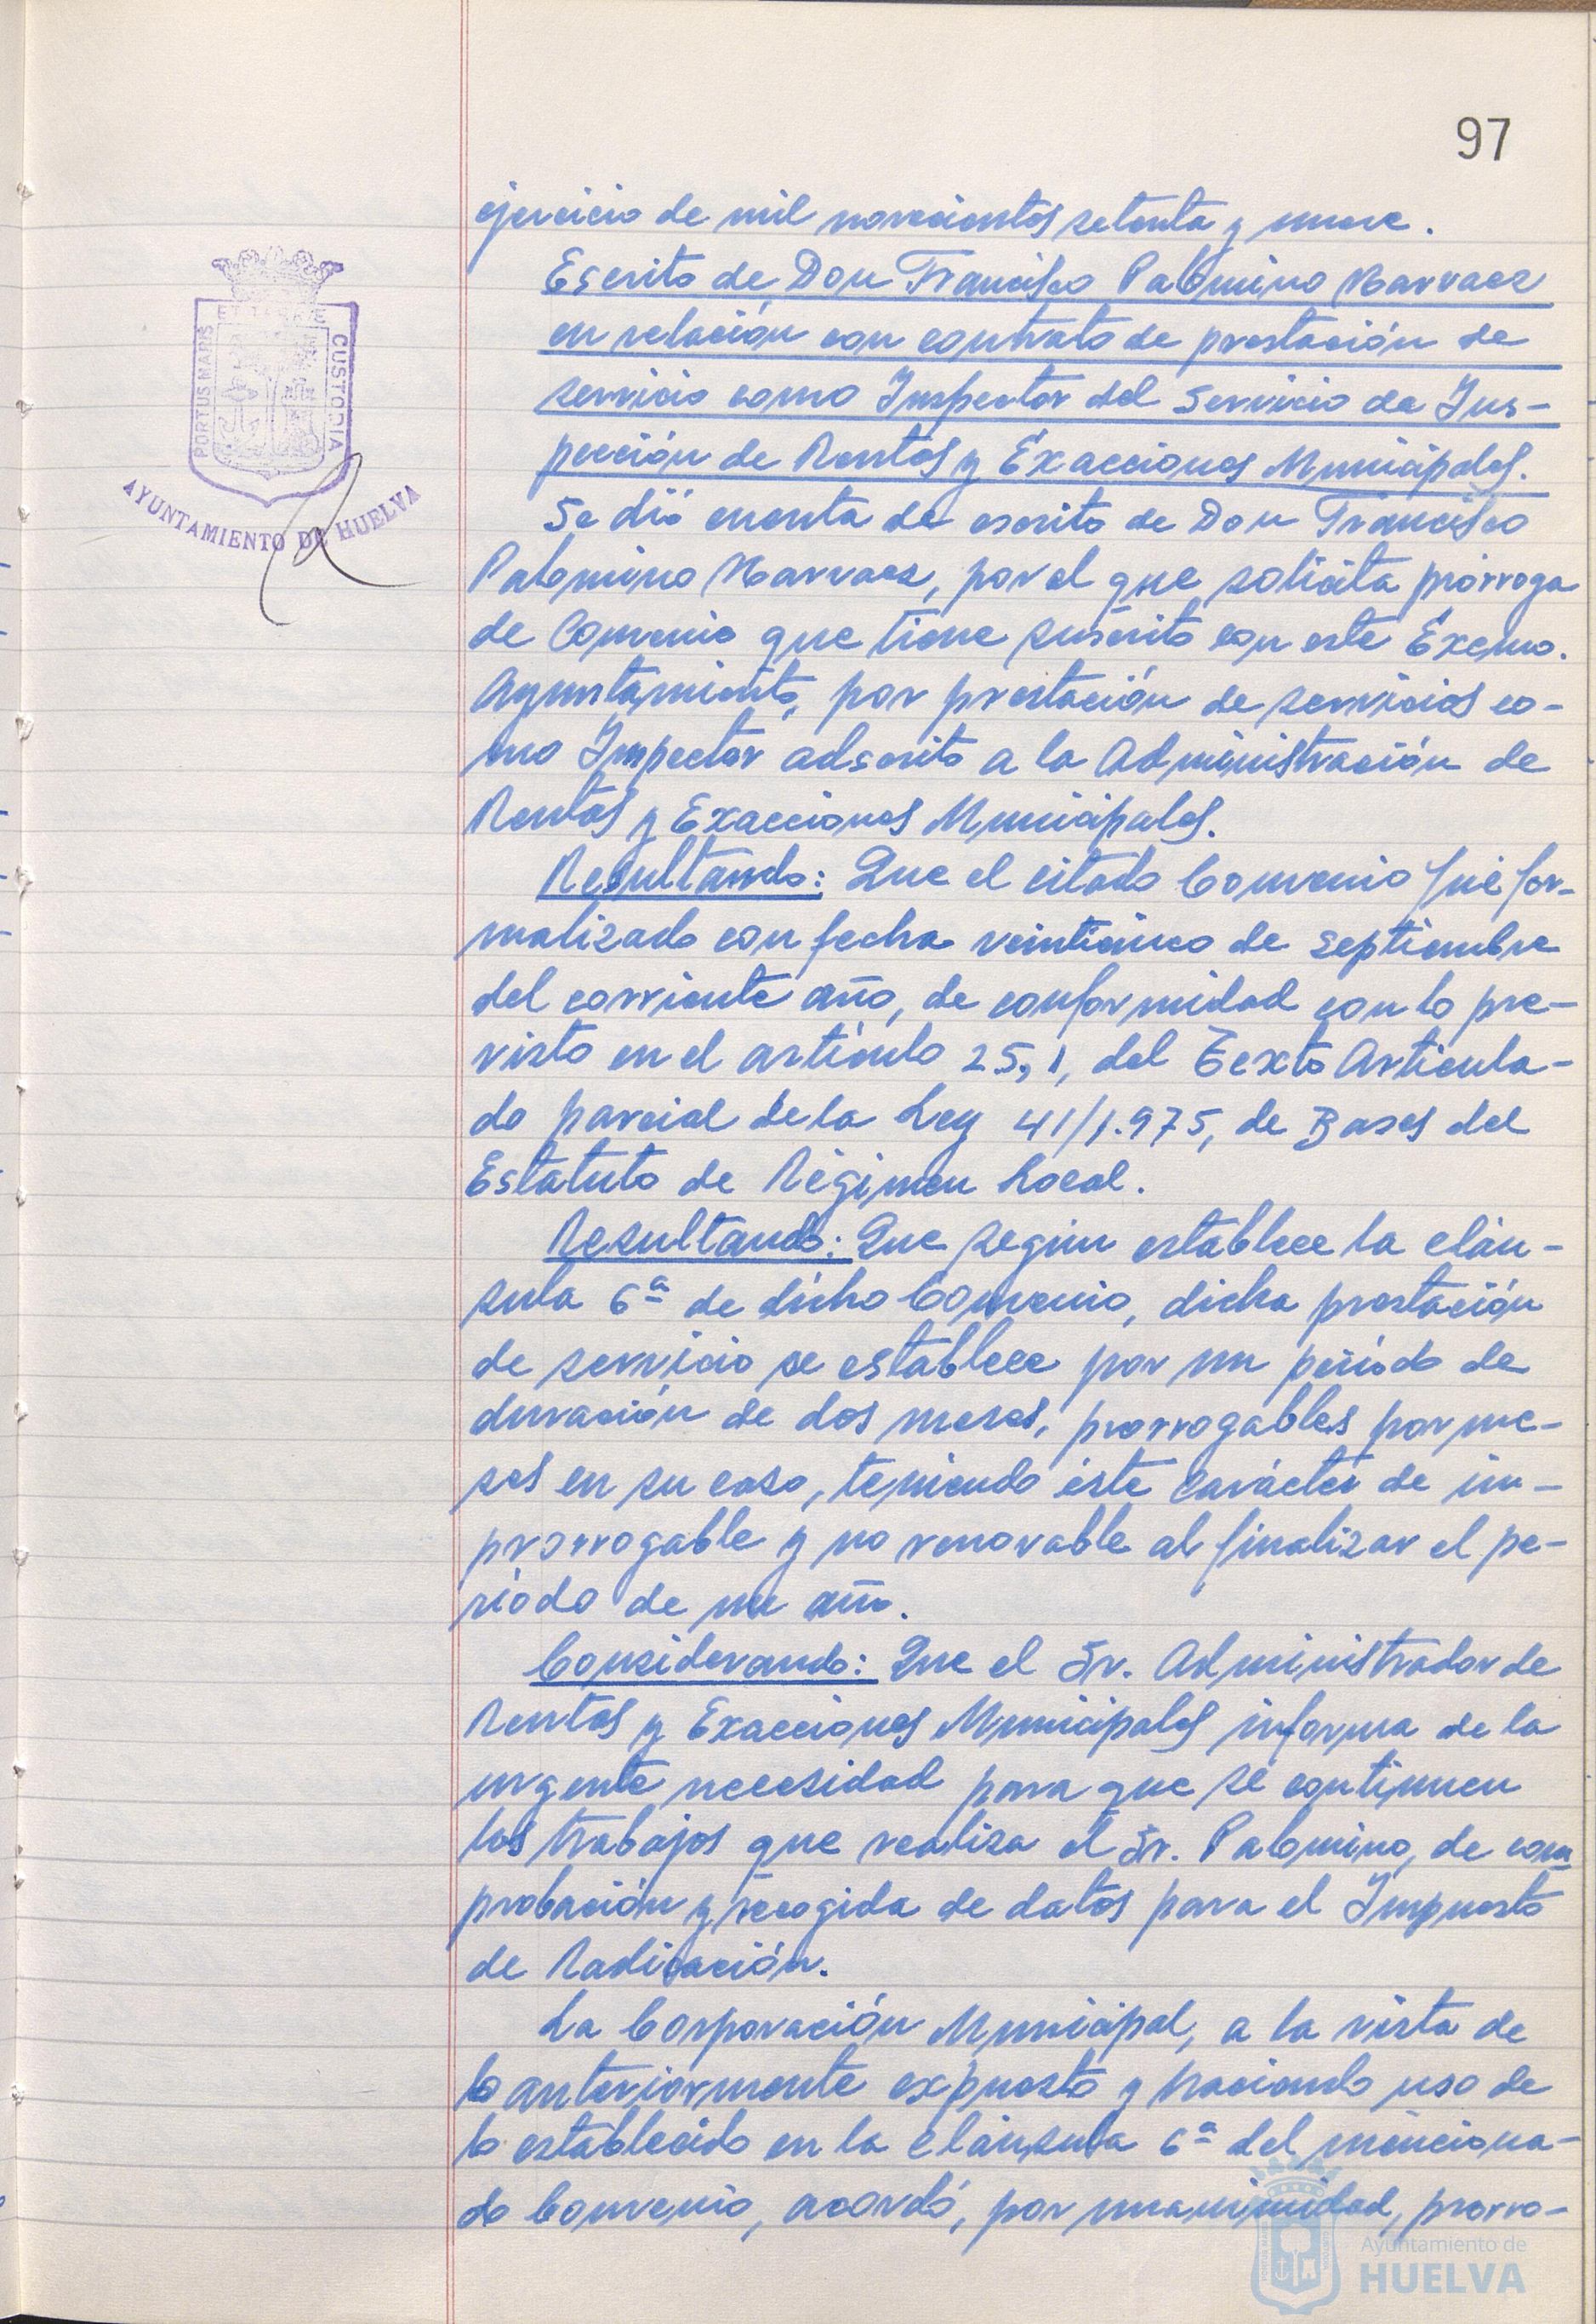 97
ejercicio de mil novecientos setenta y nueve.
Escrito de Don Francisco Palomino Narvaez
en relación con contrato de prestación de
servicio como Inspector del Servicio de Ins-
pección de Rentas y Exacciones Municipales.
Se dió cuenta de escrito de Don Francisco
Palomino Narvaez, por el que solicita prórroga
de Convenio que tiene suscrito con este Excmo.
Ayuntamiento, por prestación de servicios co-
mo Inspector adscrito a la Administración de
Rentas y Exacciones Municipales.
Resultando: Que el citado Convenio fué for-
malizado con fecha veinticinco de septiembre
del corriente año, de conformidad con lo pre-
visto en el artículo 25,1, del Texto Articula-
do parcial de la Ley 41/1.975, de Bases del
Estatuto de Régimen Local.
Resultando: Que según establece la cláu-
sula 6ª de dicho Convenio, dicha prestación
de servicio se establece por un período de
duración de dos meses, prorrogables por me-
ses en su caso, teniendo éste carácter de im-
prorrogable y no renovable al finalizar el pe-
ríodo de un año.
Considerando: Que el Sr. Administrador de
Rentas y Exacciones Municipales informa de la
urgente necesidad para que se continuen
los trabajos que realiza el Sr. Palomino, de com
probación y recogida de datos para el Impuesto
de Radicación.
La Corporación Municipal, a la vista de
lo anteriormente expuesto y haciendo uso de
lo establecido en la cláusula 6ª del menciona-
do Convenio, acordó, por unanimidad, prorro-
PORTUS MARIS
ET TERRAE
CUSTODIA
AYUNTAMIENTO DE HUELVA
Ayuntamiento de
HUELVA